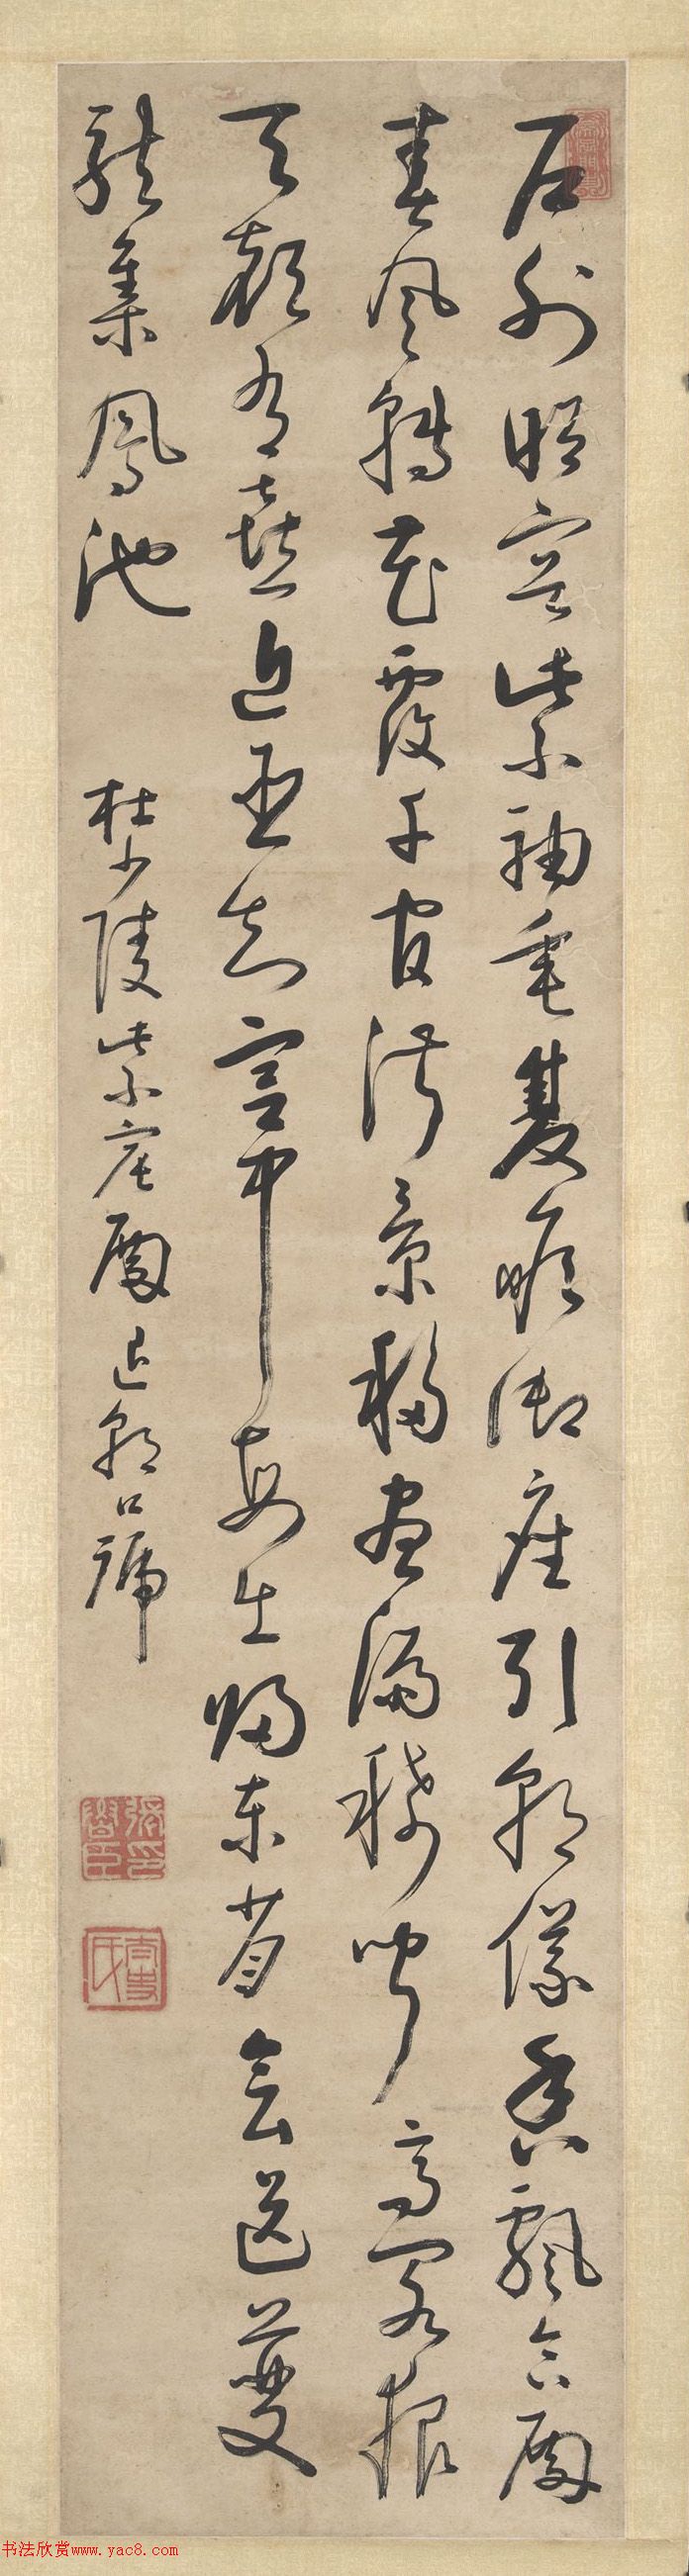 戶外昭容紫袖垂雙瞻御座引朝儀香飄合殿
春風轉花覆千官淑景移晝漏稀聞高閣報
天顏有喜近臣知宮中每出歸東省會送夔
龍集鳳池
杜少陵紫宸殿退朝口號
书法欣赏www.yac8.com